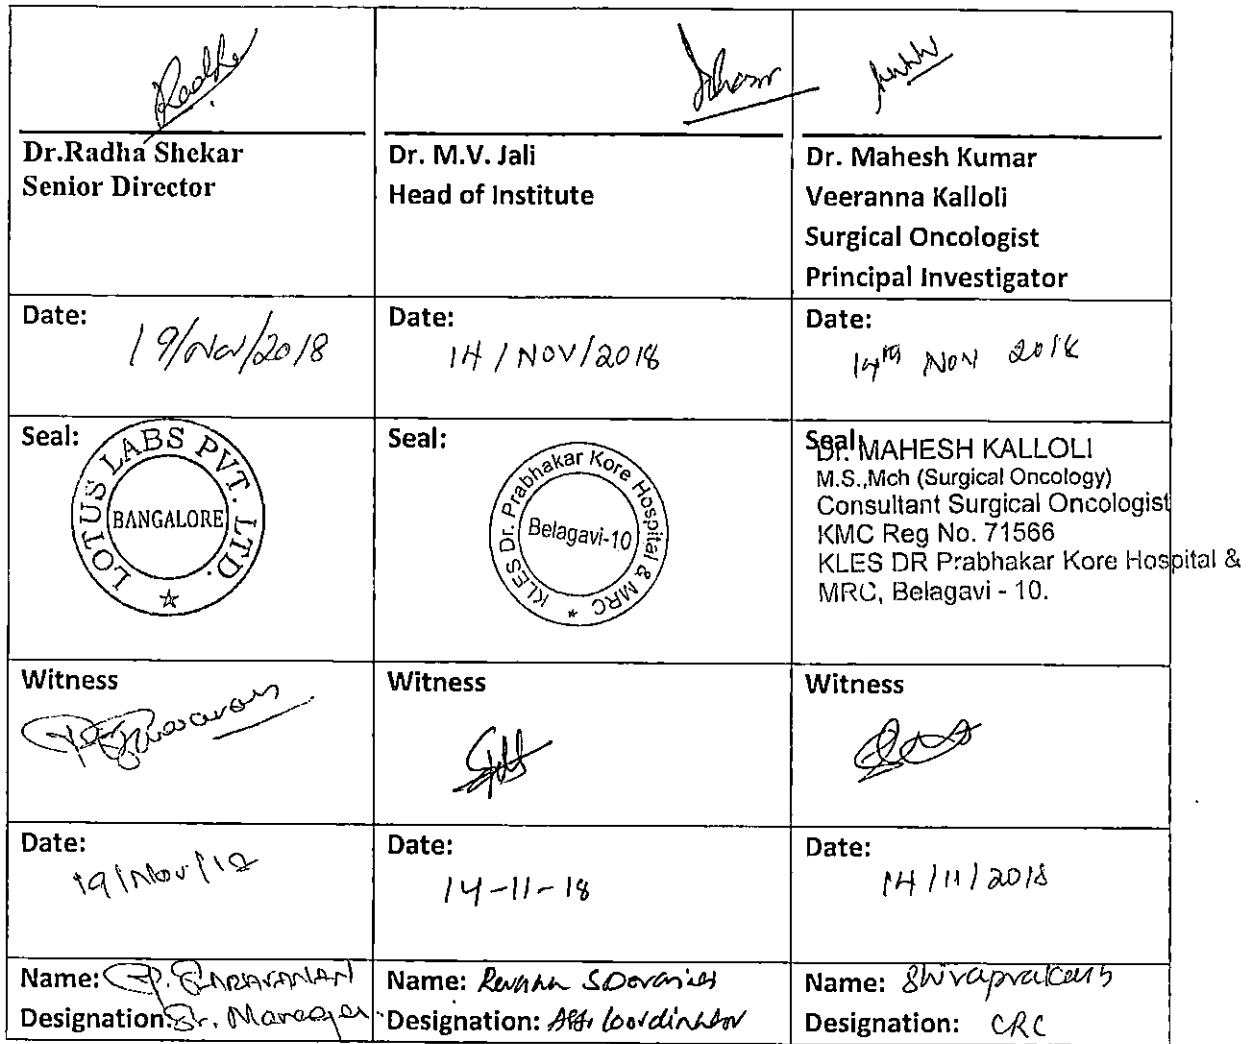 Radha
Dr.Radha Shekar
Senior Director
Dr. M.V. Jali
Head of Institute
Dr. Mahesh Kumar
Veeranna Kalloli
Surgical Oncologist
Principal Investigator
Date:
19/Nov/2018
Date:
14 / NOV/2018
Date:
14th NOV 2018
Seal:
LOTUS LABS PVT. LTD.
BANGALORE
Seal:
KLES Dr. Prabhakar Kore Hospital & MRC
Belagavi-10
Seal:
Dr. MAHESH KALLOLI
M.S.,Mch (Surgical Oncology)
Consultant Surgical Oncologist
KMC Reg No. 71566
KLES DR Prabhakar Kore Hospital &
MRC, Belagavi - 10.
Witness
Witness
Witness
Date:
19/Nov/18
Date:
14-11-18
Date:
14/11/2018
Name: P. SARAVANAN
Designation: Sr. Manager
Name:
Designation:
Name: Shivaprakash
Designation: CRC